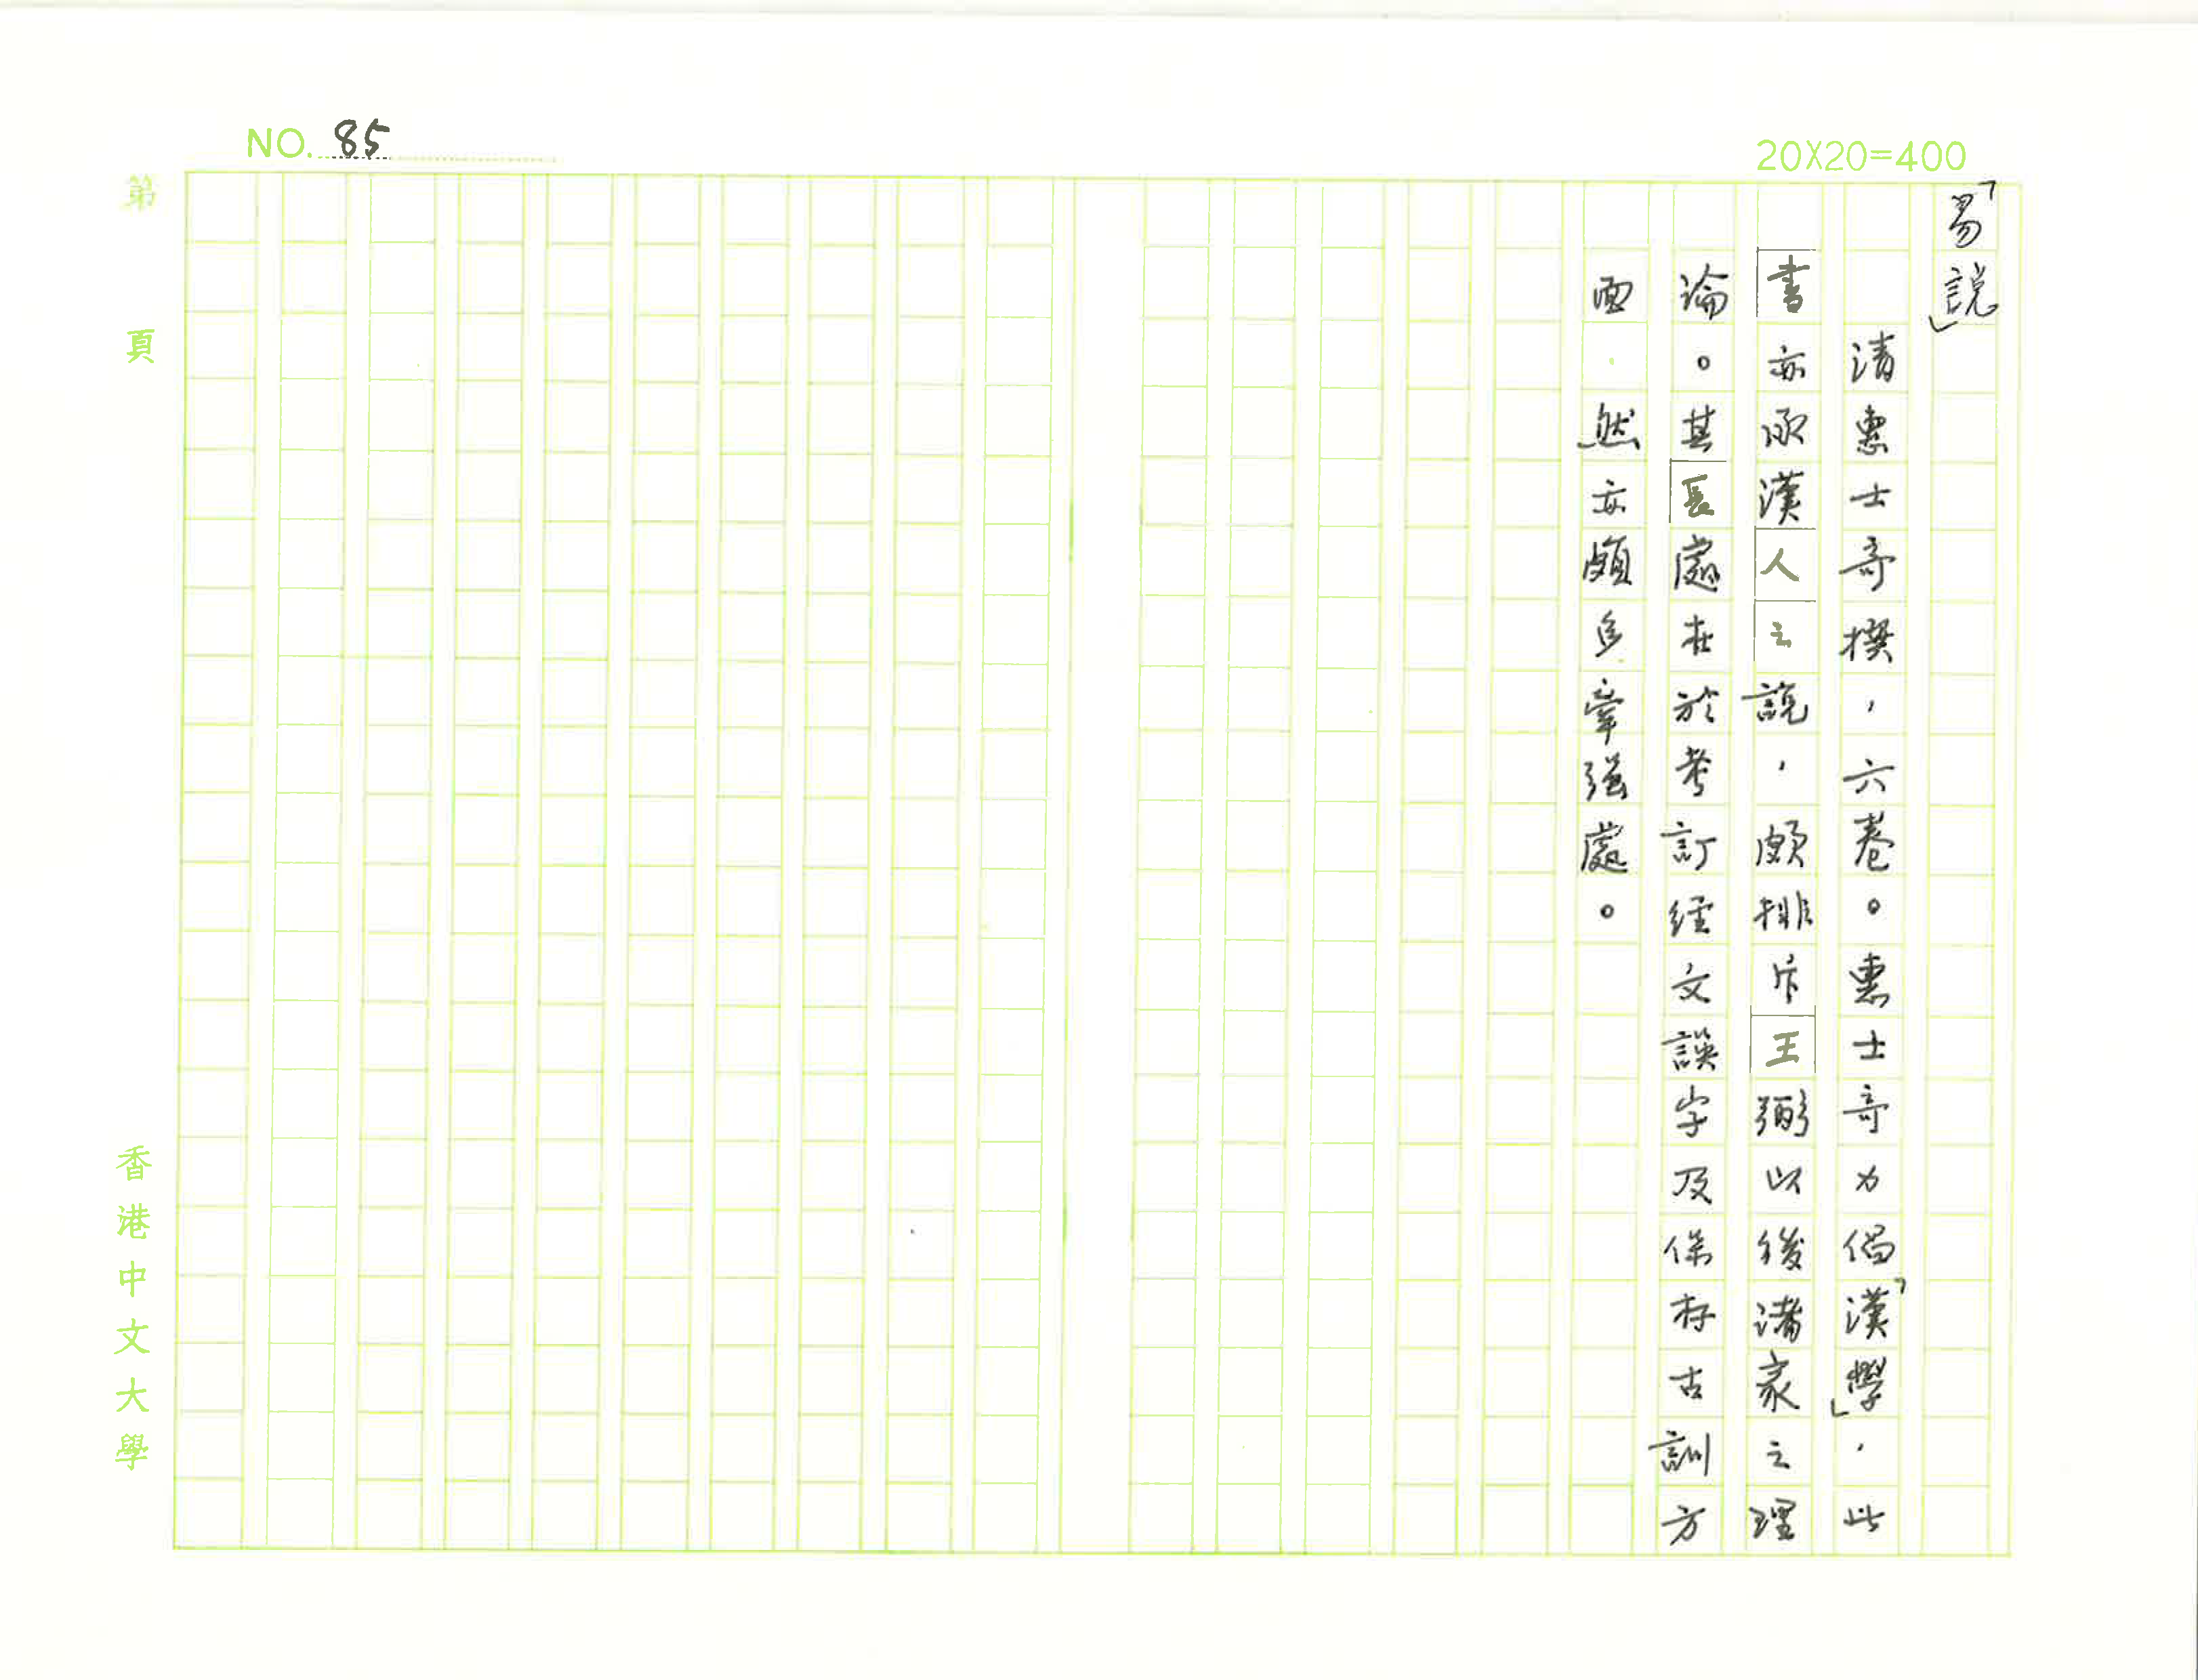 NO. 85
20X20=400
「易說」
清惠士奇撰，六卷。惠士奇力倡「漢學」，此
書亦承漢人之說，頗排斥王弼以後諸家之理
論。其長處在於考訂經文誤字及保存古訓方
面，然亦頗多牽强處。
第 頁
香港中文大學